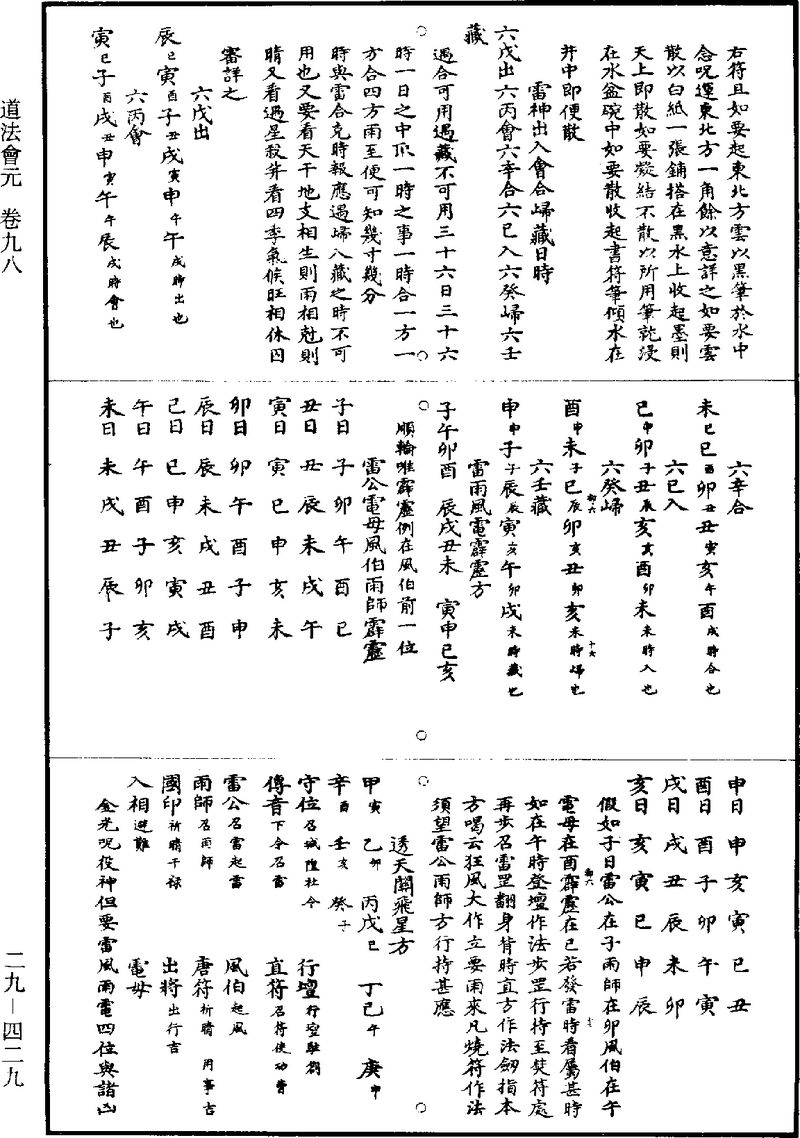 道法會元　卷九八
二九－四二九
右符且如要起東北方雲以黑筆於水中
念呪運東北方一角餘以意詳之如要雲
散以白紙一張鋪搭在黑水上收起墨則
天上即散如要凝結不散以所用筆乾浸
在水盆碗中如要散收起書符筆傾水在
井中即便散
雷神出入會合歸藏日時
六戊出六丙會六辛合六已入六癸歸六壬
藏
遇合可用遇藏不可用三十六日三十六
時一日之中爪一時之事一時合一方一
方合四方雨至便可知幾寸幾分
時與雷合克時報應遇歸入藏之時不可
用也又要看天干地支相生則雨相尅則
晴又看遇星殺并看四季氣候旺相休囚
審詳之
六戊出
辰巳寅酉子丑戌寅申午午戌時出也
六丙會
寅巳子酉戌丑申寅午午辰戌時會也
六辛合
未巳巳酉卯丑丑寅亥午酉戌時合也
六已入
巳申卯子丑辰亥亥酉卯未未時入也
六癸歸
酉申未子巳辰卯亥丑卯亥未時歸也
六壬藏
申申子子辰辰寅亥午卯戌未時藏也
雷雨風電霹靂方
子午卯酉　辰戌丑未　寅申巳亥
順輪唯霹靂例在風伯前一位
雷公電母風伯雨師霹靂
子日　子　卯　午　酉　巳
丑日　丑　辰　未　戌　午
寅日　寅　巳　申　亥　未
卯日　卯　午　酉　子　申
辰日　辰　未　戌　丑　酉
巳日　巳　申　亥　寅　戌
午日　午　酉　子　卯　亥
未日　未　戌　丑　辰　子
申日　申　亥　寅　巳　丑
酉日　酉　子　卯　午　寅
戌日　戌　丑　辰　未　卯
亥日　亥　寅　巳　申　辰
假如子日雷公在子雨師在卯風伯在午
電母在酉霹靂在巳若發雷時看屬甚時
如在午時登壇作法步罡行持至焚符處
再步召雷罡翻身背時直方作法劒指本
方喝云狂風大作立要雨來凡燒符作法
須望雷公雨師方行持甚應
透天關飛星方
甲寅　乙卯　丙戊巳　丁己午　庚申
辛酉　壬亥　癸子
守位召城隍社令　行壇行壇駐劄
傳音下令召雷　直符召符使功曹
雷公召雷起雷　風伯起風
雨師召雨師　唐符祈晴　用事吉
國印祈晴干祿　出將出行吉
入相避難　電母
金光呪役神但要雷風雨電四位與諸凶